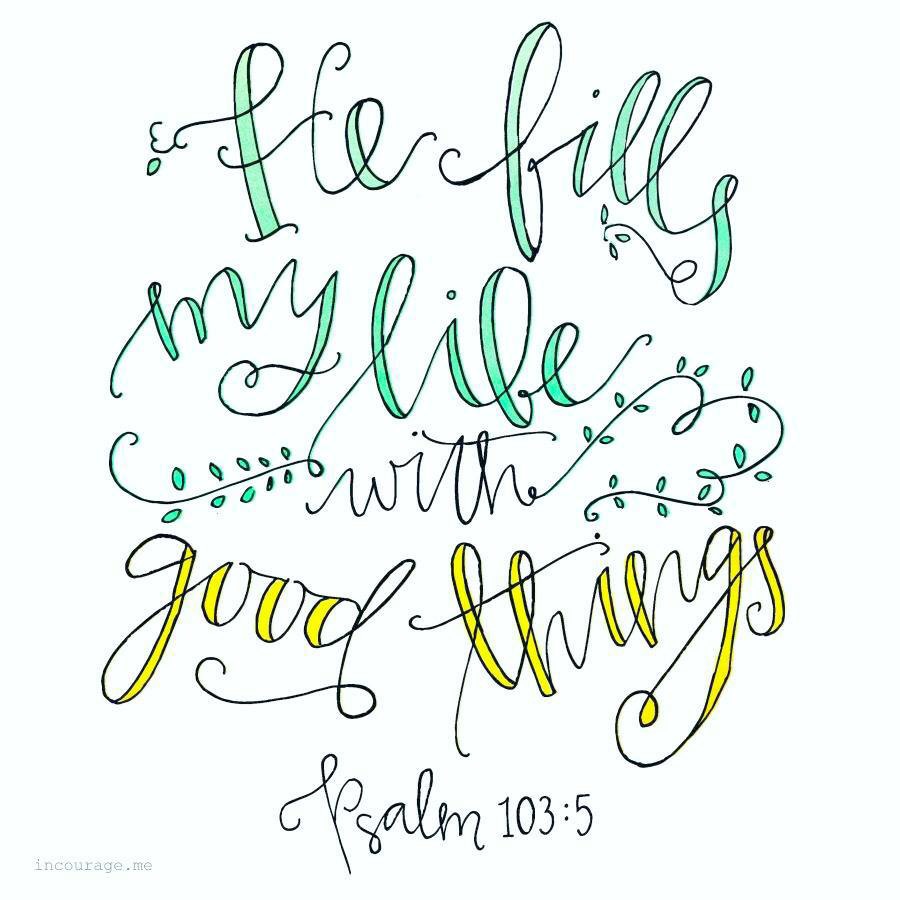 He fills
my life
with
good things
Psalm 103:5
incourage.me